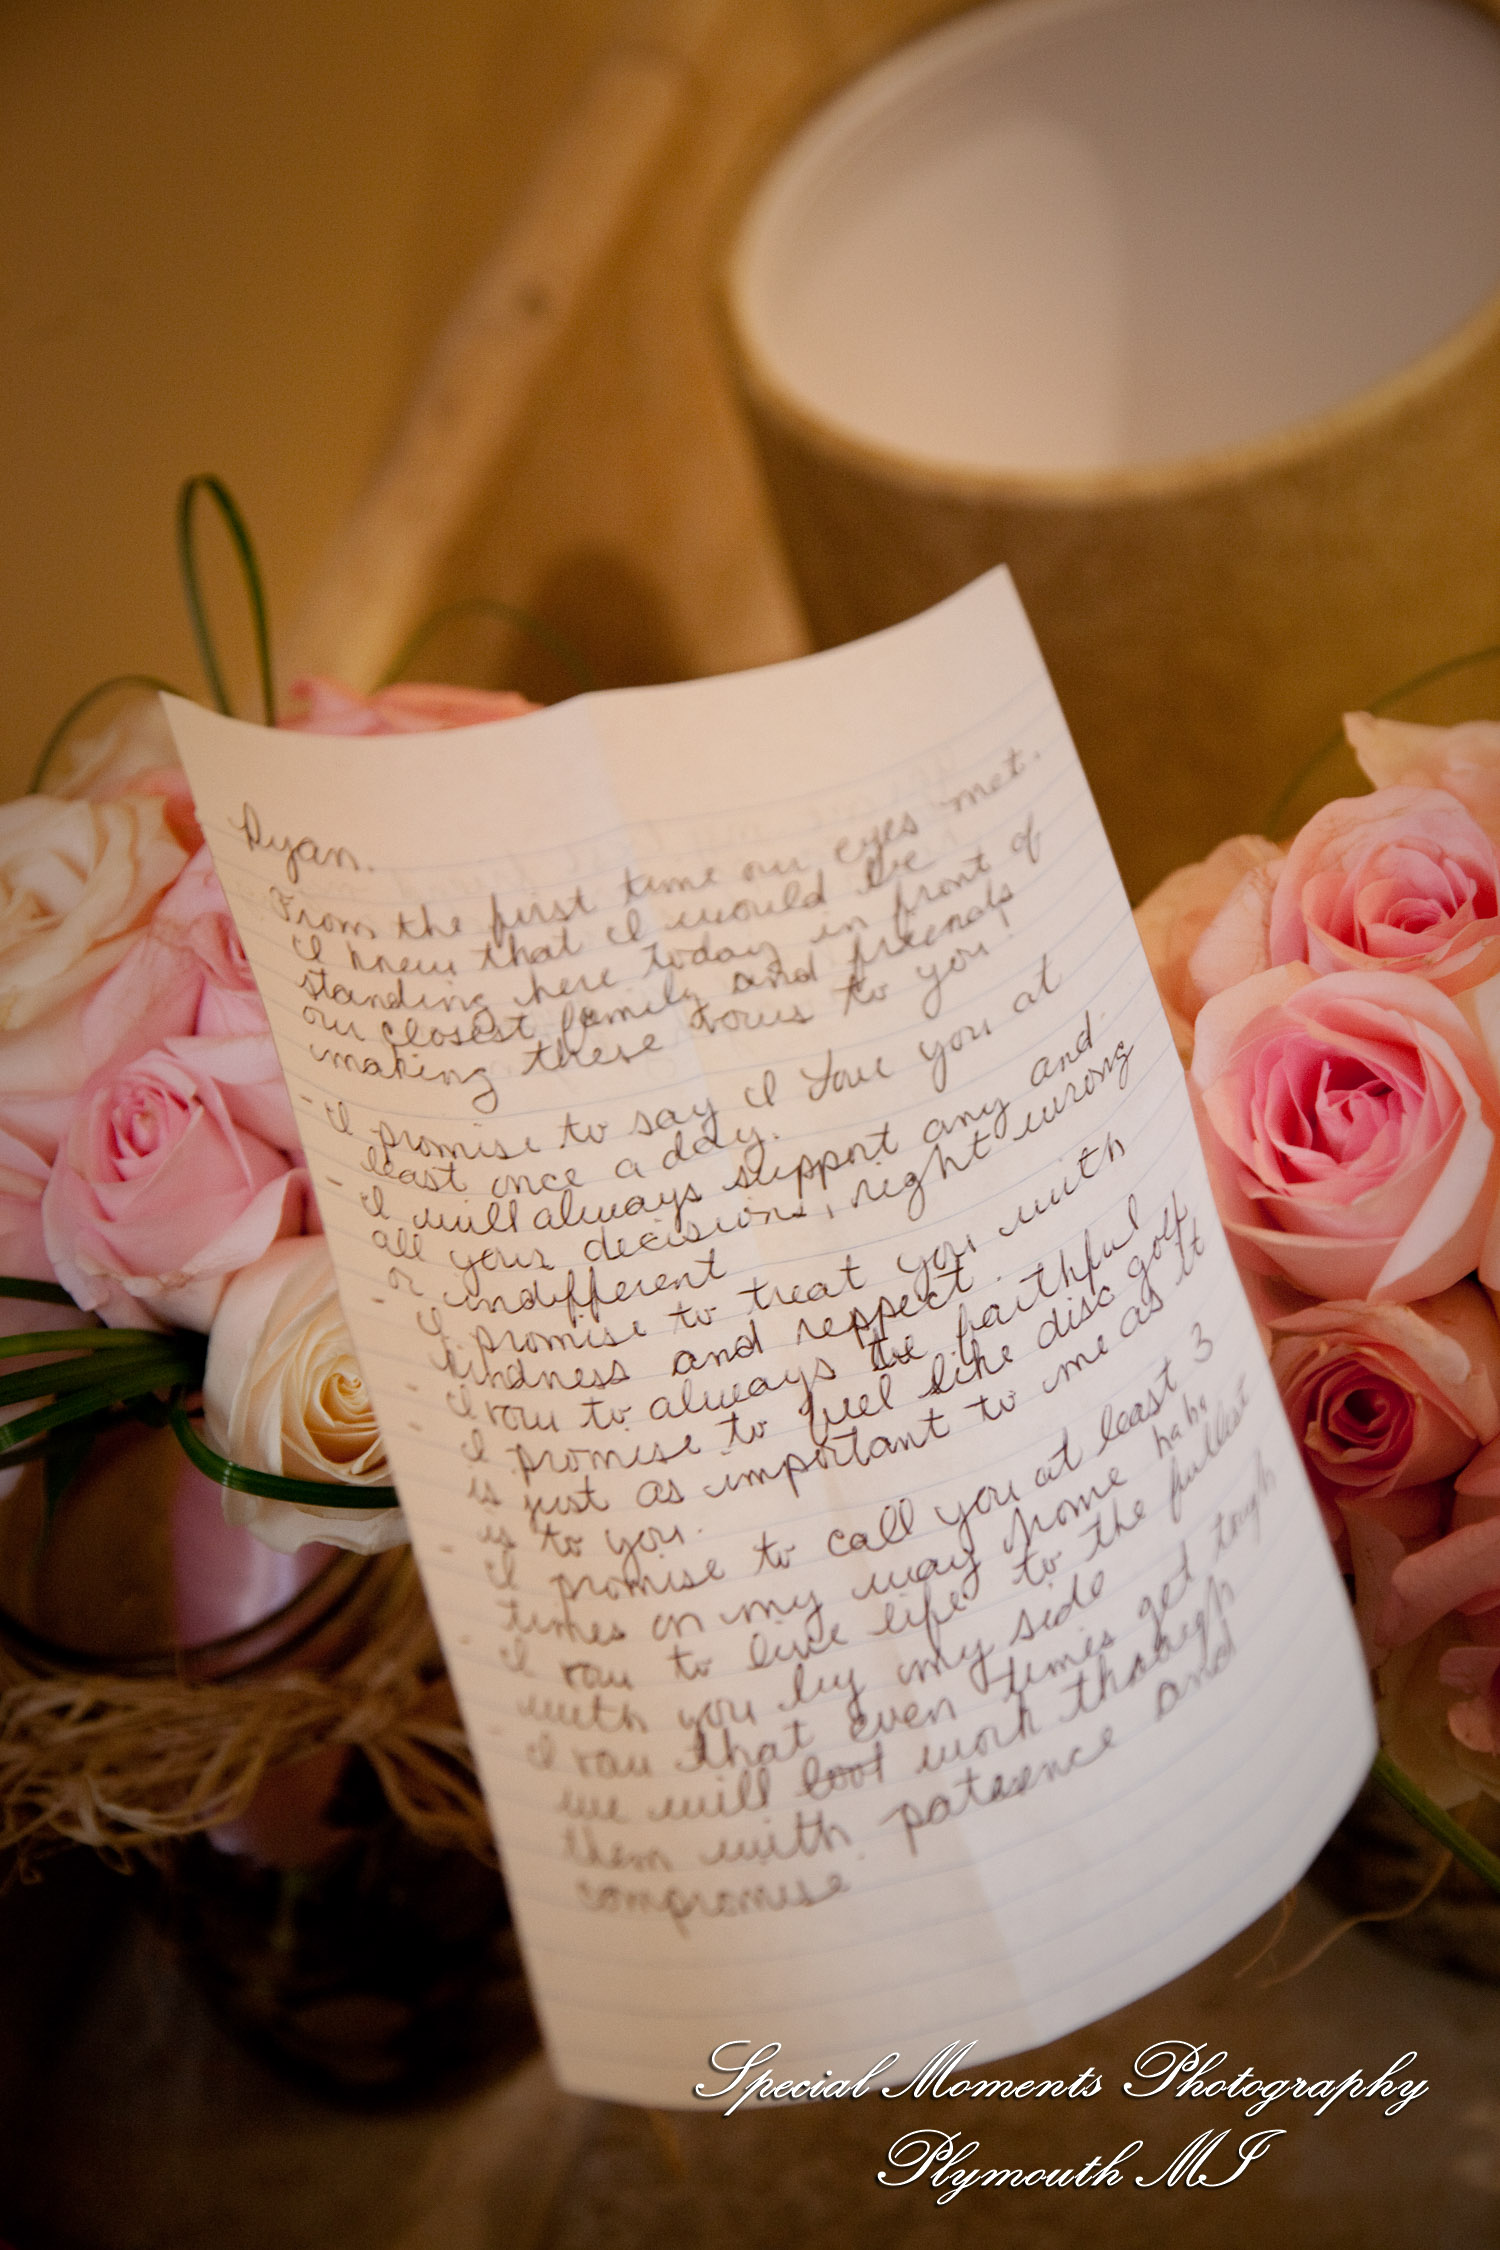 Ryan.
From the first time our eyes met.
I knew that I would be
standing here today in front of
our closest family and friends
making these vows to you!
- I promise to say I love you at
least once a day.
- I will always support any and
all your decisions, right wrong
or indifferent
- I promise to treat you with
kindness and respect.
- I vow to always be faithful
- I promise to feel like disc golf
is just as important to me as it
is to you.
- I promise to call you at least 3
times on my way home haha
- I vow to live life to the fullest
with you by my side
- I vow that even times get tough
we will work through
them with patience and
compromise
Special Moments Photography
Plymouth MI